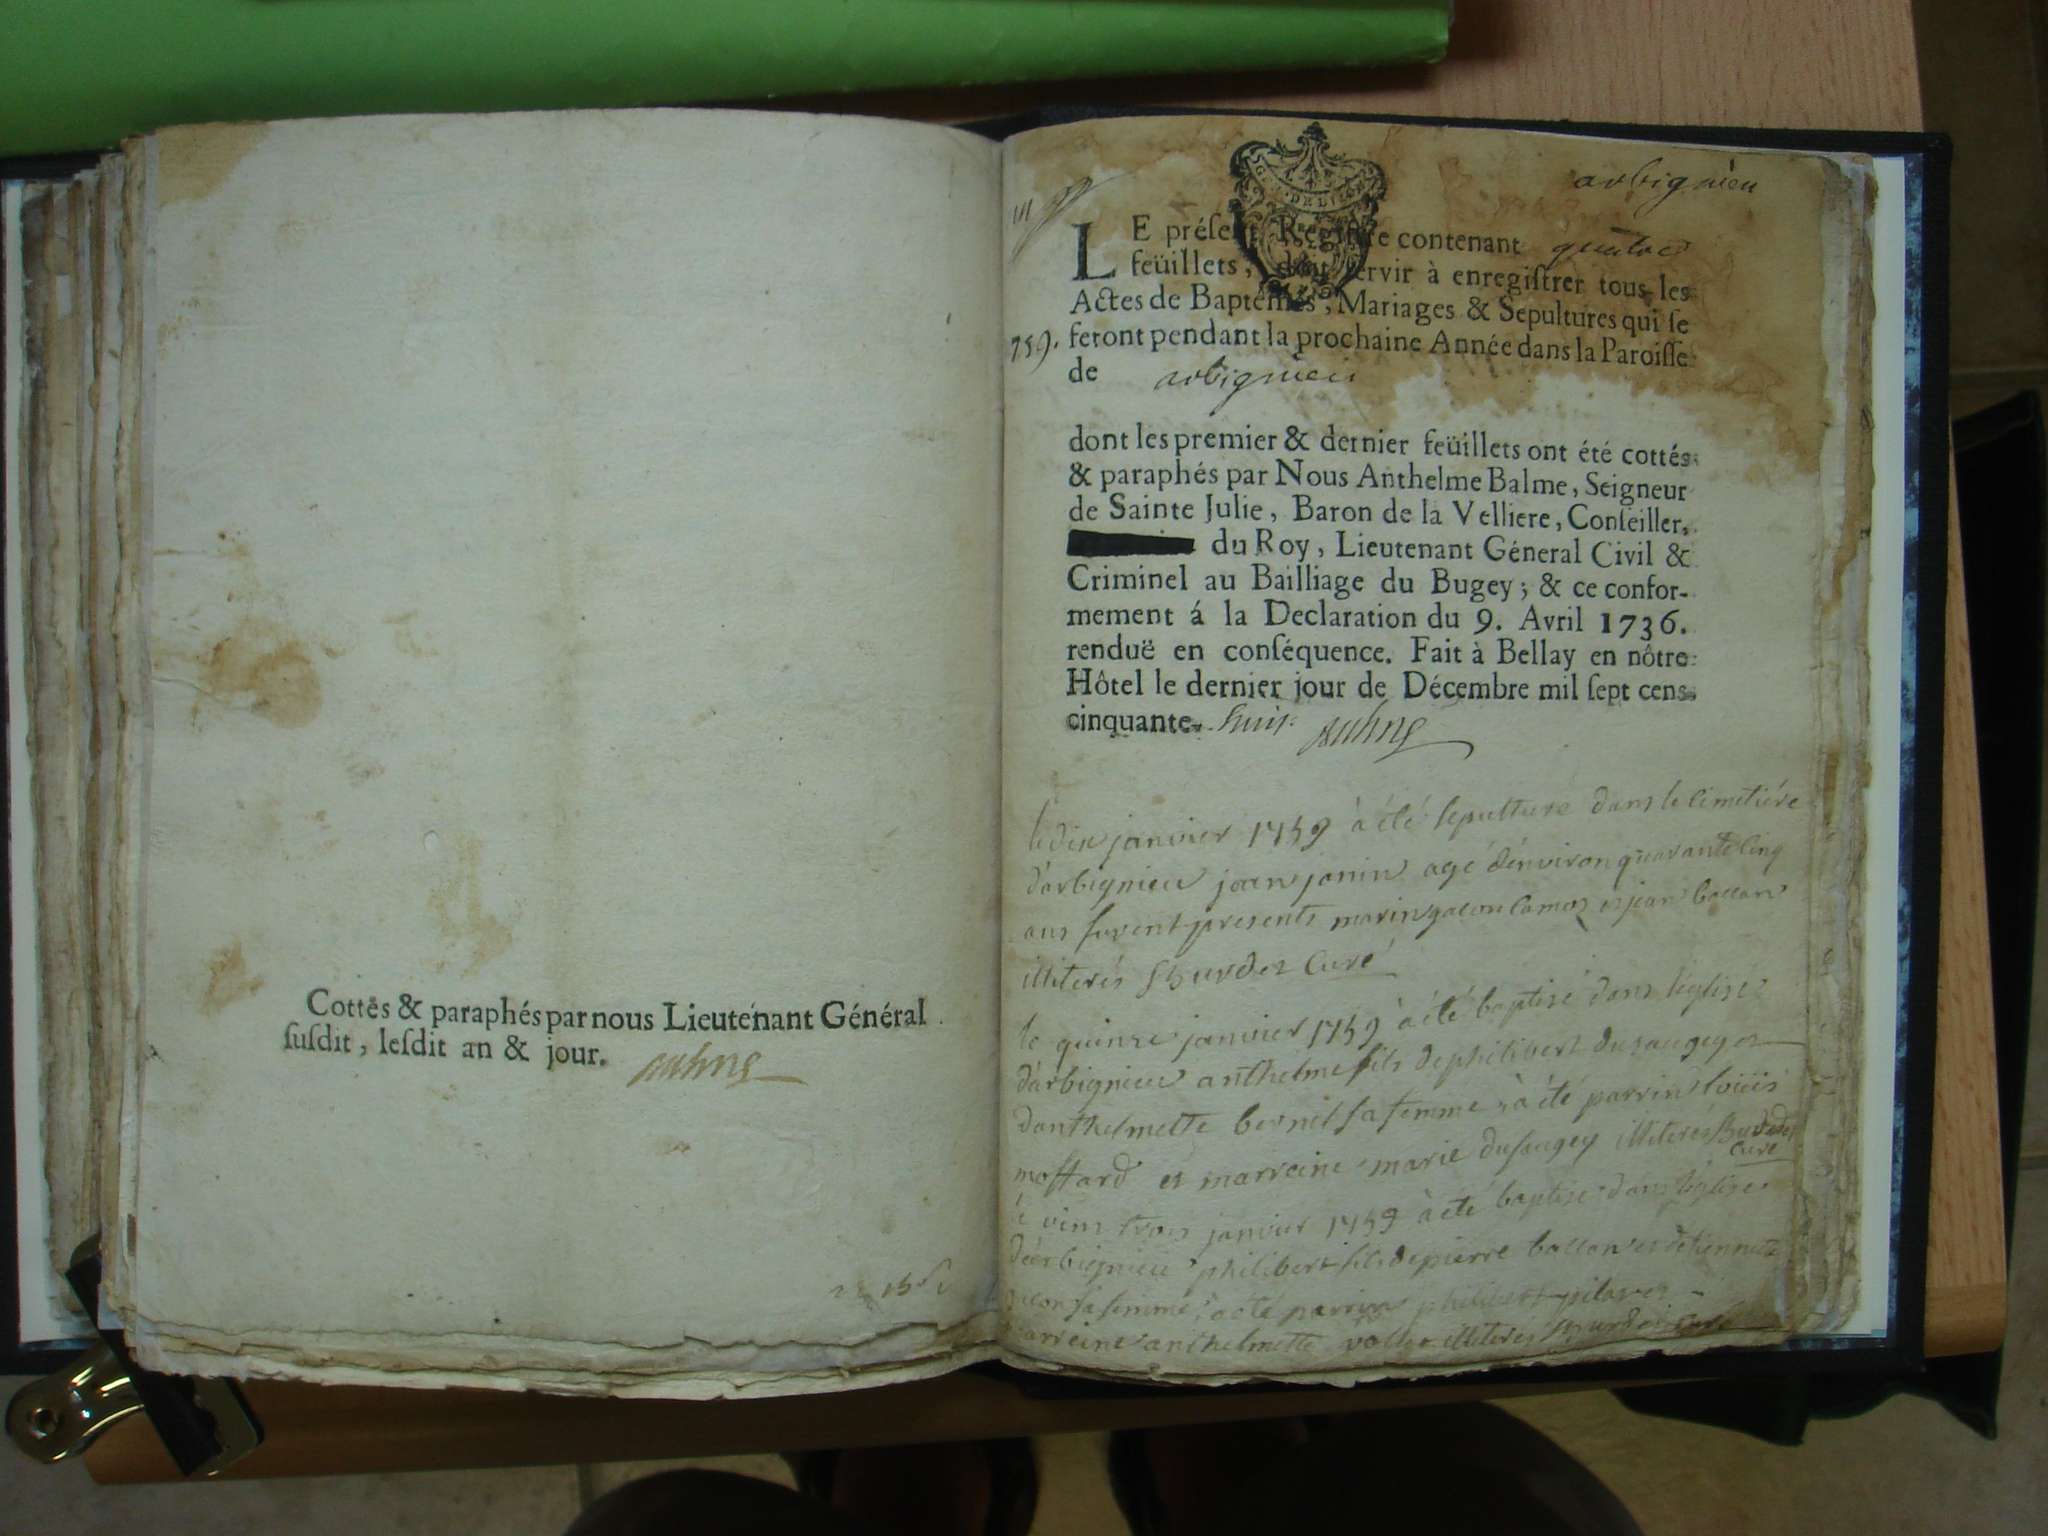 Cottés & paraphés par nous Lieutenant Général
susdit, lesdit an & jour.
arbignieu
LE présent Registre contenant quatre
feüillets, doit servir à enregistrer tous les
Actes de Baptêmes, Mariages & Sepultures qui se
feront pendant la prochaine Année dans la Paroisse
759.
de arbignieu
dont les premier & dernier feüillets ont été cottés
& paraphés par Nous Anthelme Balme, Seigneur
de Sainte Julie, Baron de la Velliere, Conseiller,
du Roy, Lieutenant Géneral Civil &
Criminel au Bailliage du Bugey; & ce confor-
mement á la Declaration du 9. Avril 1736.
renduë en conséquence. Fait à Bellay en nôtre
Hôtel le dernier jour de Décembre mil sept cens
cinquante. huit
le dix janvier 1759 à été sepulture dans le cimetiére
d'arbignieu jean janin agé d'environ quarante cinq
ans furent presents marin et jean
illiterés curé
le quinze janvier 1759 à été baptisé dans l'églisé
d'arbignieu anthelme fils de philibert dusaugey et
d'anthelmette bernet sa femme, à été parrin loüis
mottard et marreine marie dusaugey illiterés
curé
le vint trois janvier 1759 à été baptisé dans l'églisé
d'arbignieu philibert fils de pierre
sa femme, à été parrin philibert
marreine anthelmette illiterés curé